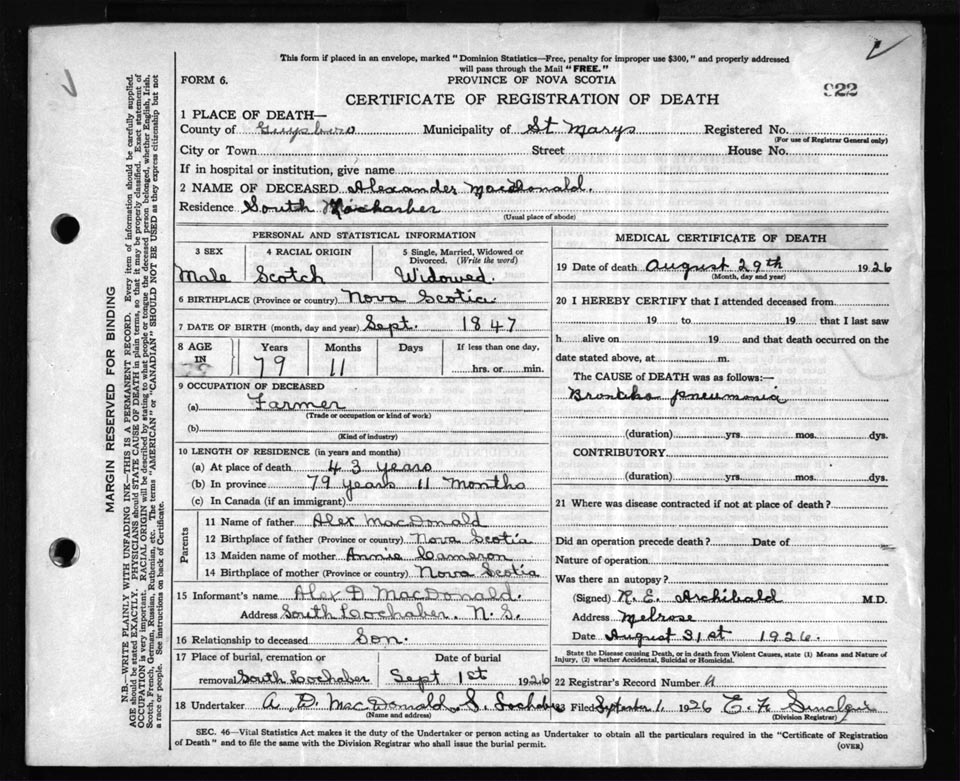 This form if placed in an envelope, marked "Dominion Statistics—Free, penalty for improper use $300," and properly addressed
will pass through the Mail "FREE."
FORM 6.
PROVINCE OF NOVA SCOTIA
922
CERTIFICATE OF REGISTRATION OF DEATH
1 PLACE OF DEATH—
County of Guysboro Municipality of St. Marys Registered No.
(For use of Registrar General only)
City or Town Street House No.
If in hospital or institution, give name
2 NAME OF DECEASED Alexander MacDonald.
Residence South
(Usual place of abode)
PERSONAL AND STATISTICAL INFORMATION
3 SEX 4 RACIAL ORIGIN 5 Single, Married, Widowed or
Divorced. (Write the word)
Male Scotch Widowed.
6 BIRTHPLACE (Province or country) Nova Scotia
7 DATE OF BIRTH (month, day and year) Sept. 1847
8 AGE Years Months Days If less than one day,
IN
79 11 hrs. or min.
9 OCCUPATION OF DECEASED
(a) Farmer
(Trade or occupation or kind of work)
(b)
(Kind of industry)
10 LENGTH OF RESIDENCE (in years and months)
(a) At place of death 43 years
(b) In province 79 years 11 months
(c) In Canada (if an immigrant)
Parents
11 Name of father Alex MacDonald
12 Birthplace of father (Province or country) Nova Scotia
13 Maiden name of mother Annie Cameron
14 Birthplace of mother (Province or country) Nova Scotia
15 Informant's name Alex D. MacDonald.
Address South Lochaber. N. S.
16 Relationship to deceased Son.
17 Place of burial, cremation or Date of burial
removal South Lochaber Sept 1st 1926
18 Undertaker A. D. MacDonald S. Lochaber
(Name and address)
MEDICAL CERTIFICATE OF DEATH
19 Date of death August 29th 1926
(Month, day and year)
20 I HEREBY CERTIFY that I attended deceased from
19 to 19 that I last saw
h alive on 19 and that death occurred on the
date stated above, at m.
The CAUSE of DEATH was as follows:—
Bronkho pneumonia
(duration) yrs. mos. dys.
CONTRIBUTORY
(duration) yrs. mos. dys.
21 Where was disease contracted if not at place of death?
Did an operation precede death? Date of
Nature of operation
Was there an autopsy?
(Signed) R. E. Archibald M.D.
Address Melrose
Date August 31st 1926.
State the Disease causing Death, or in death from Violent Causes, state (1) Means and Nature of
Injury, (2) whether Accidental, Suicidal or Homicidal.
22 Registrar's Record Number
Filed September 1, 1926 Sinclair
(Division Registrar)
SEC. 46—Vital Statistics Act makes it the duty of the Undertaker or person acting as Undertaker to obtain all the particulars required in the "Certificate of Registration
of Death" and to file the same with the Division Registrar who shall issue the burial permit.
(OVER)
MARGIN RESERVED FOR BINDING
N.B.—WRITE PLAINLY WITH UNFADING INK—THIS IS A PERMANENT RECORD. Every item of information should be carefully supplied.
AGE should be stated EXACTLY. PHYSICIANS should STATE CAUSE OF DEATH in plain terms, so that it may be properly classified. Exact statement of
OCCUPATION is very important. RACIAL ORIGIN will be described by stating to what people or tongue the deceased person belonged, whether English, Irish,
Scotch, French, German, Russian, Ruthenian, etc. The terms "AMERICAN" or "CANADIAN" SHOULD NOT BE USED as they express citizenship but not
a race or people. See instructions on back of Certificate.